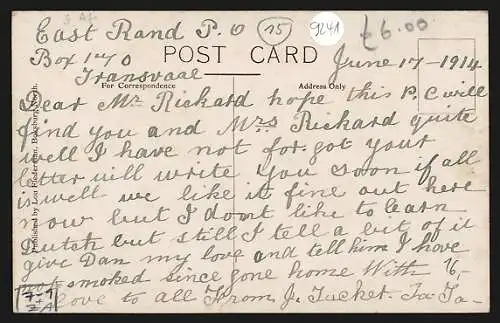 East Rand P.O
Box 170
Transvaal
15
9241
£6.00
POST CARD
June 17-1914
For Correspondence
Address Only
Dear Mr Rickard hope this P.C will
find you and Mrs Rickard quite
well I have not for.got your
letter will write you soon if all
is well we like it fine out here
now but I dont like to learn
Dutch but still I tell a bit of it
give Dan my love and tell him I have
not smoked since gone home With
love to all From J. Tucket. Ta-Ta-
Published by Leo Boksburg North.